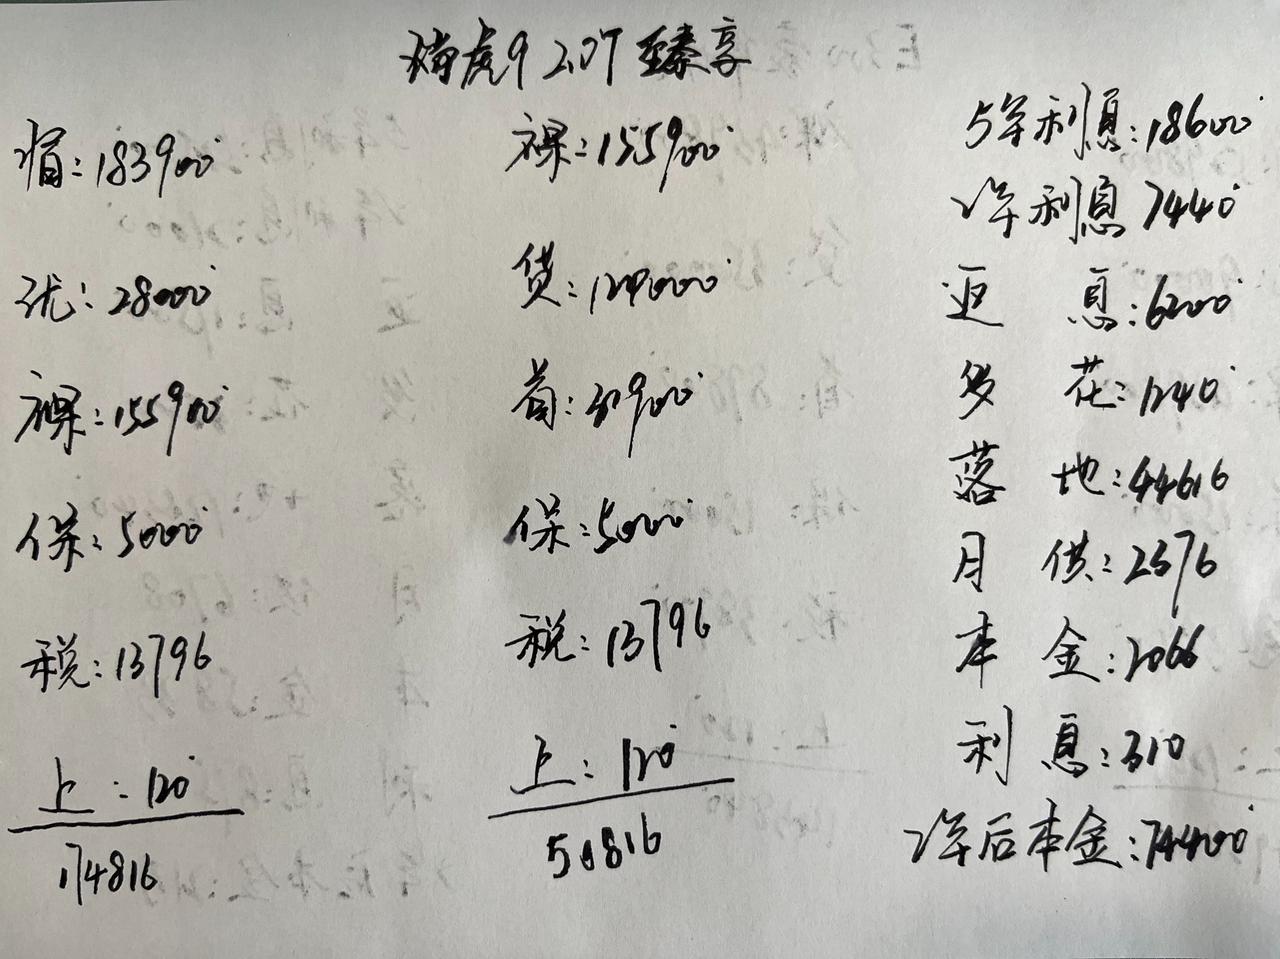 瑞虎9 2.0T 至臻享
指:183900
优:28000
裸:155900
保:5000
税:13796
上:120
174816
裸:155900
贷:124000
首:31900
保:5000
税:13796
上:120
50816
5年利息:18600
2年利息 7440
返 息:6200
多 花:1240
落 地:44616
月 供:2376
本 金:2066
利 息:310
2年后本金:74400